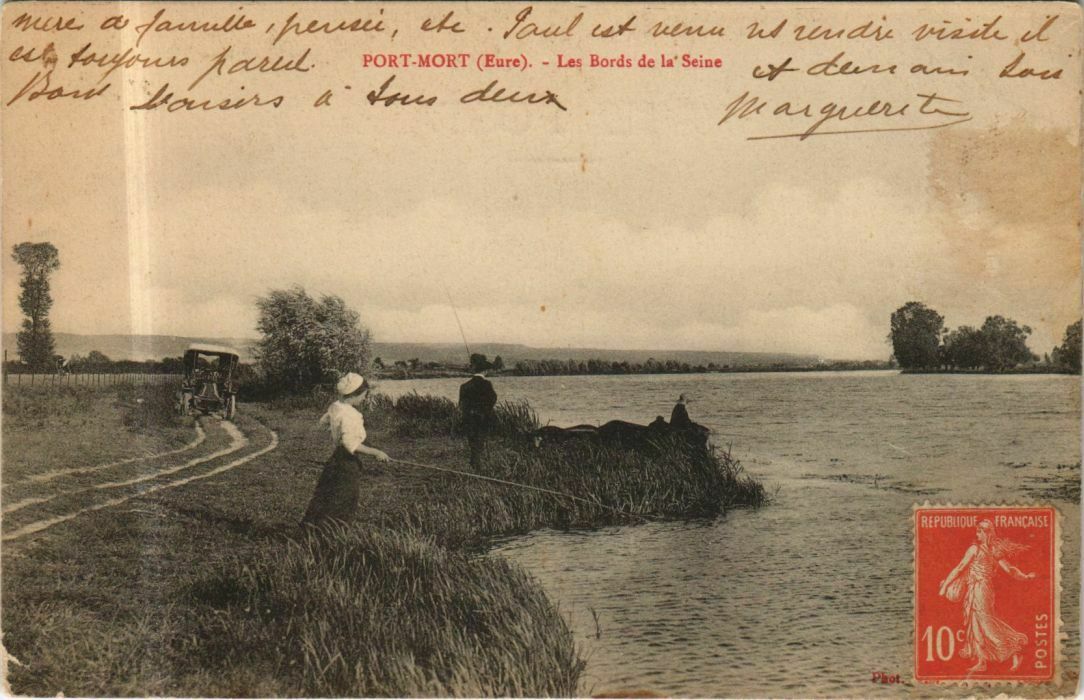 mere de famille, pensée, etc. Paul est venu ns rendre visite il
est toujours pareil.
PORT-MORT (Eure). - Les Bords de la Seine
et demain soir
Bons baisers à tous deux
Marguerite
REPUBLIQUE FRANÇAISE
10c
POSTES
Phot.